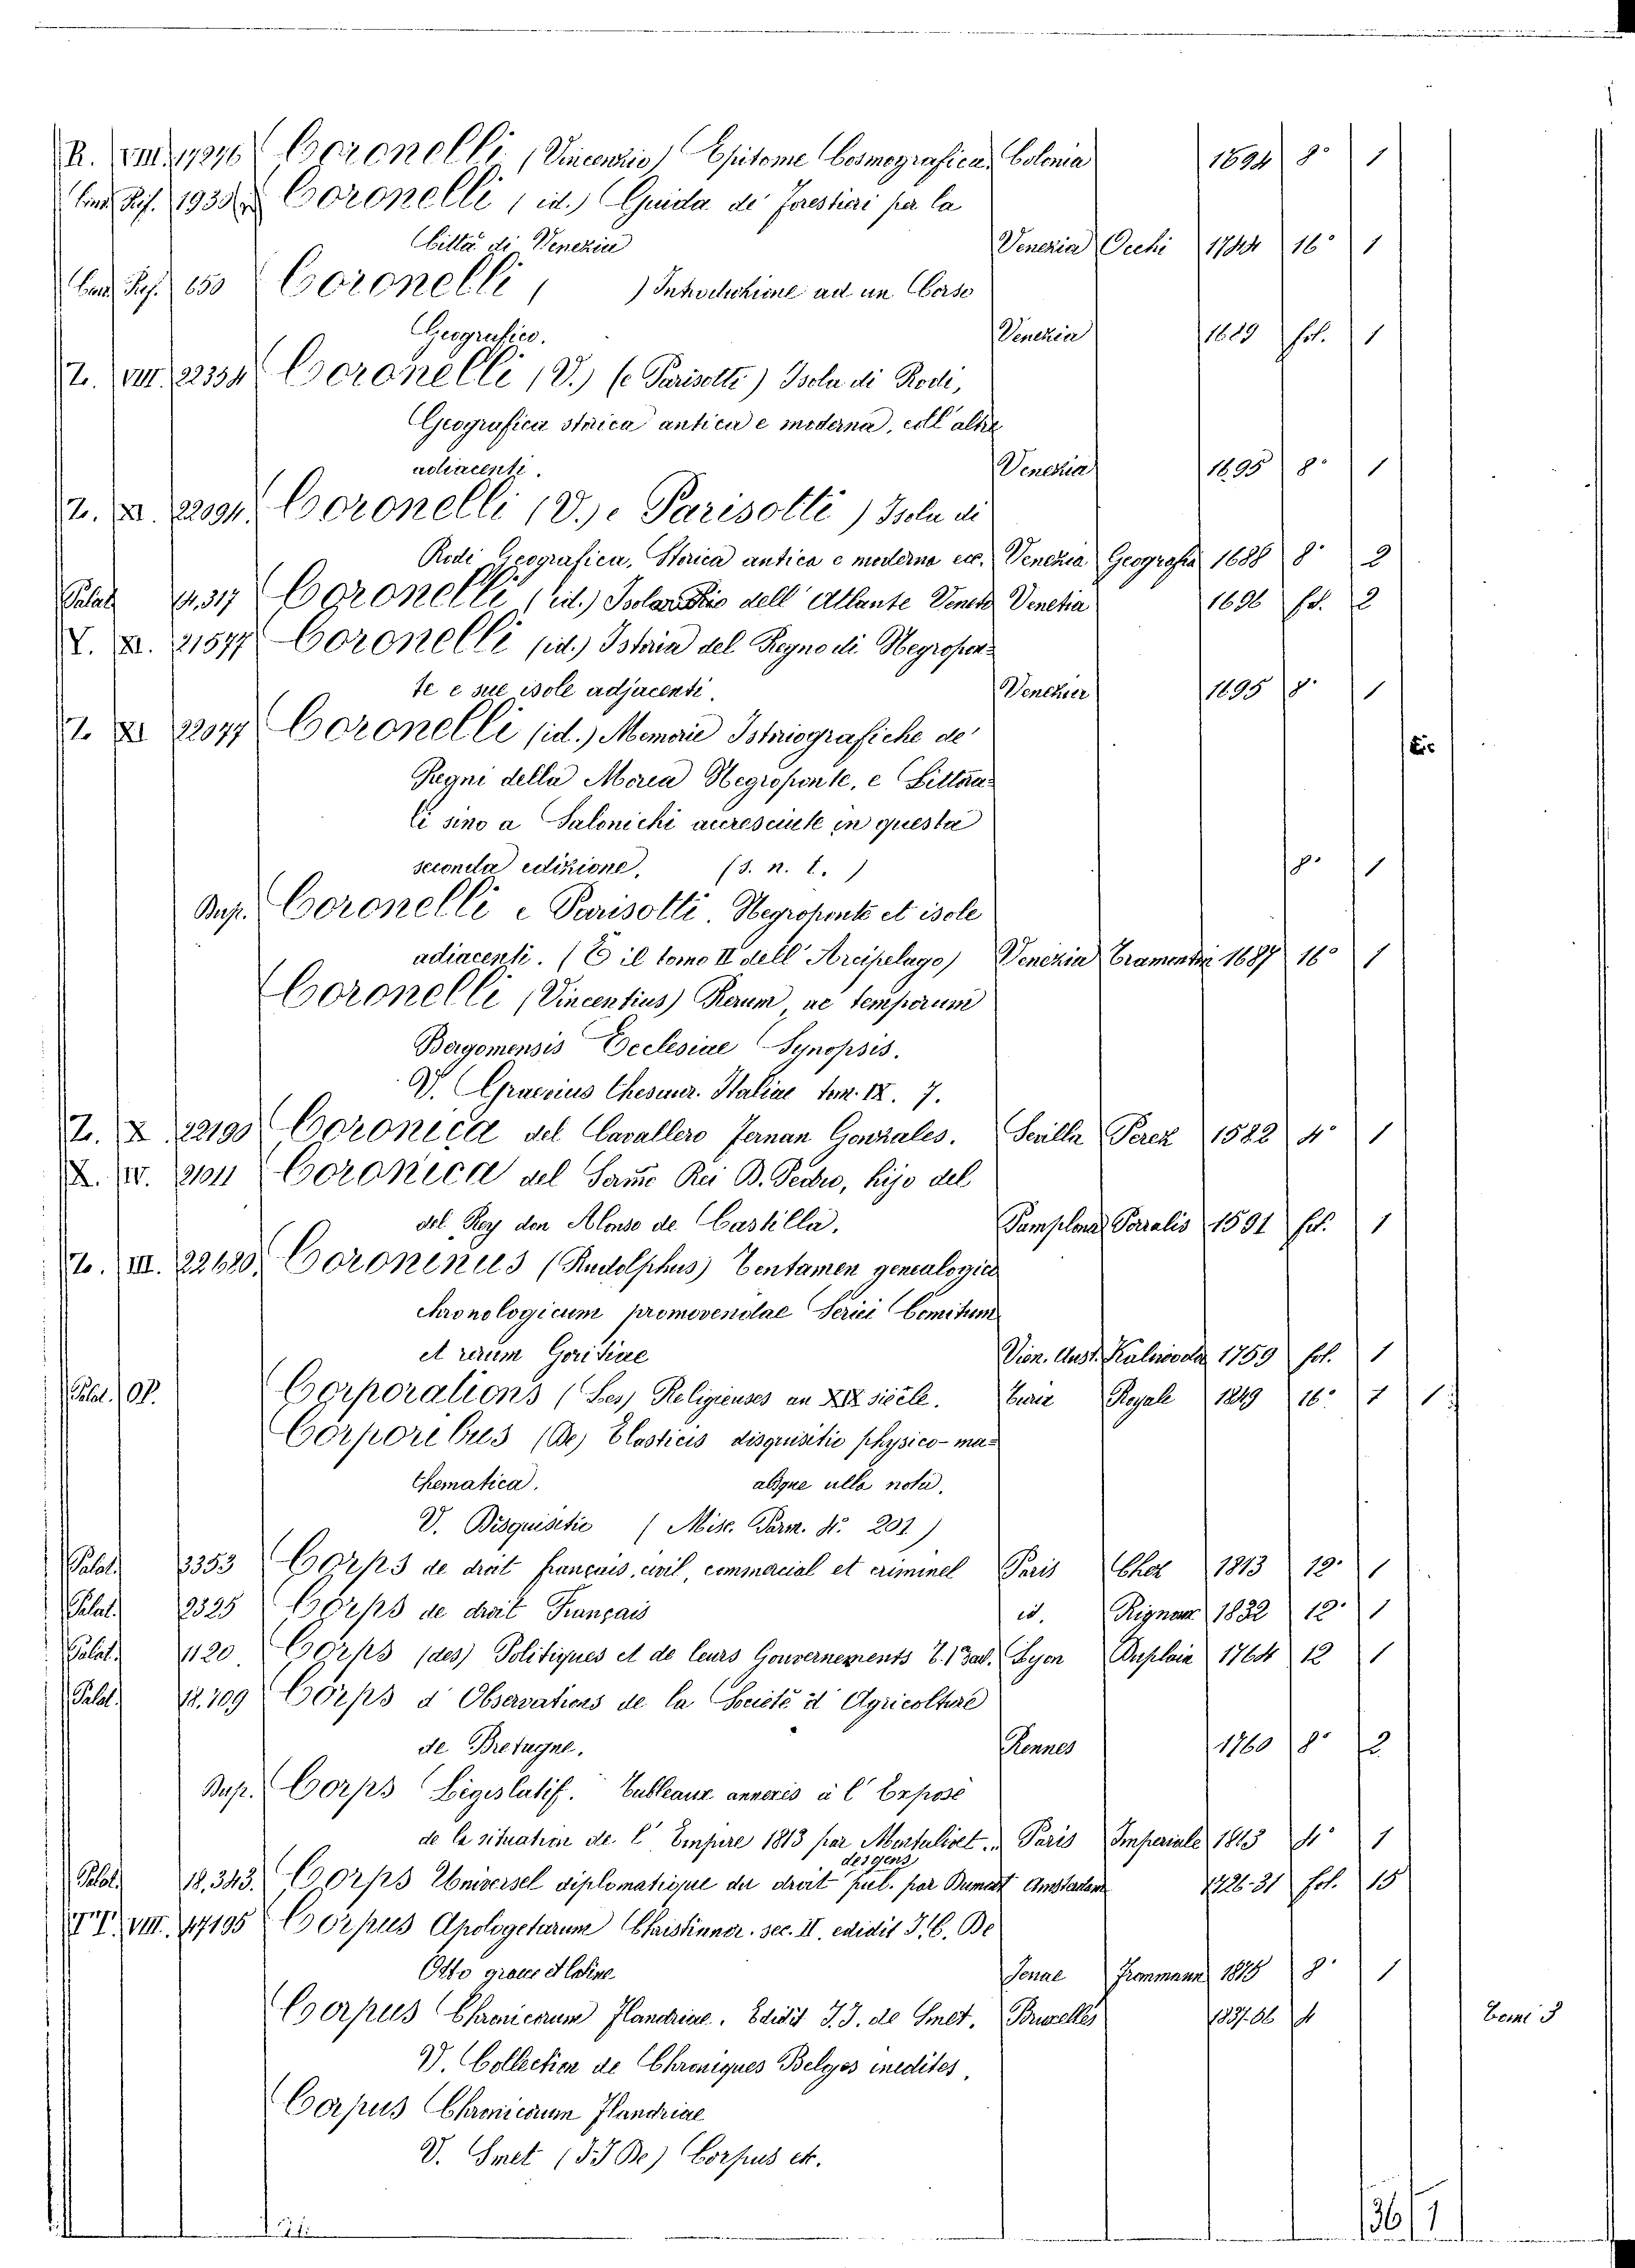 R. VIII. 17276 Coronelli (Vincenzio) Epitome Cosmografica Colonia 1694 8° 1
Rif. 1933 Coronelli (id.) Guida de' Forestieri per la
Città di Venezia Venezia Occhi 1744 16° 1
Rif. 650 Coronelli ( ) Introduzione ad un Corso
Geografico. Venezia 1689 fol. 1
Z. VIII. 22334 Coronelli (V.) (e Parisotti) Isola di Rodi,
Geografica storica antica e moderna, coll'altre
adiacenti. Venezia 1695 8° 1
Z. XI. 22094. Coronelli (V.) e Parisotti) Isola di
Rodi Geografica, Storica antica e moderna ecc. Venezia Geografia 1688 8° 2
Palat 14.317 Coronelli (id.) Isolario dell'Atlante Veneto Venetia 1696 fol. 2
Y. XI. 21577 Coronelli (id.) Istoria del Regno di Negropon-
te e sue isole adjacenti. Venezia 1695 8° 1
Z. XI 22077 Coronelli (id.) Memorie Istoriografiche de'
Regni della Morea Negroponte, e Littora-
li sino a Salonichi accresciute in questa
seconda edizione. (s. n. t.) 8° 1
Dup. Coronelli e Parisotti. Negroponte et isole
adiacenti. (È il tomo II dell'Arcipelago) Venezia Tramontin 1687 16° 1
Coronelli (Vincentius) Rerum, ac temporum
Bergomensis Ecclesiae Synopsis.
V. Graevius Thesaur. Italiae tom. IX. 7.
Z. X 22190 Coronica del Cavallero Fernan Gonzales. Sevilla Perez 1582 4° 1
X. IV. 21011 Coronica del Sermo Rei D. Pedro, hijo del
del Rey don Alonso de Castilla. Pamplona Porralis 1591 fol. 1
Z. III. 22620. Coroninus (Rudolphus) Tentamen genealogico
chronologicum promovendae Seriei Comitum
et rerum Goritiae Vien. Aust. Kaliwoda 1759 fol. 1
Palat. OP. Corporations (Les) Religieuses au XIX siècle. Turin Royale 1849 16° 1 1
Corporibus (De) Elasticis disquisitio physico-ma-
thematica. absque ulla nota.
V. Disquisitio (Misc. Parm. N. 201)
Palat. 3353 Corps de droit français, civil, commercial et criminel Paris 1813 12° 1
Palat. 2325 Corps de droit Français id. Rignoux 1832 12° 1
Palat. 1120 Corps (des) Politiques et de leurs Gouvernements T. 1 Lyon Duplain 1764 12 1
Palat. 18.709 Corps d'Observations de la Societé d'Agricolture
de Bretagne. Rennes 1760 8° 2
Dup. Corps Législatif. Tableaux annexés à l'Exposé
de la situation de l'Empire 1813 par Montalivet. Paris Imperiale 1813 4° 1
des gens
Palat. 18.343. Corps Universel diplomatique du droit pub. par Dumont Amsterdam 1726-31 fol. 15
TT. VIII. 47195 Corpus Apologetarum Christianor. sec. II. edidit J. C. De
Otto graece et latine Jenae Frommann 1875 8° 1
Corpus Chronicorum Flandriae. Edidit J. J. de Smet. Bruxelles 1837-56 4 Tomi 3
V. Collection de Chroniques Belges inedites.
Corpus Chronicorum Flandriae
V. Smet (J J De) Corpus etc.
36 1